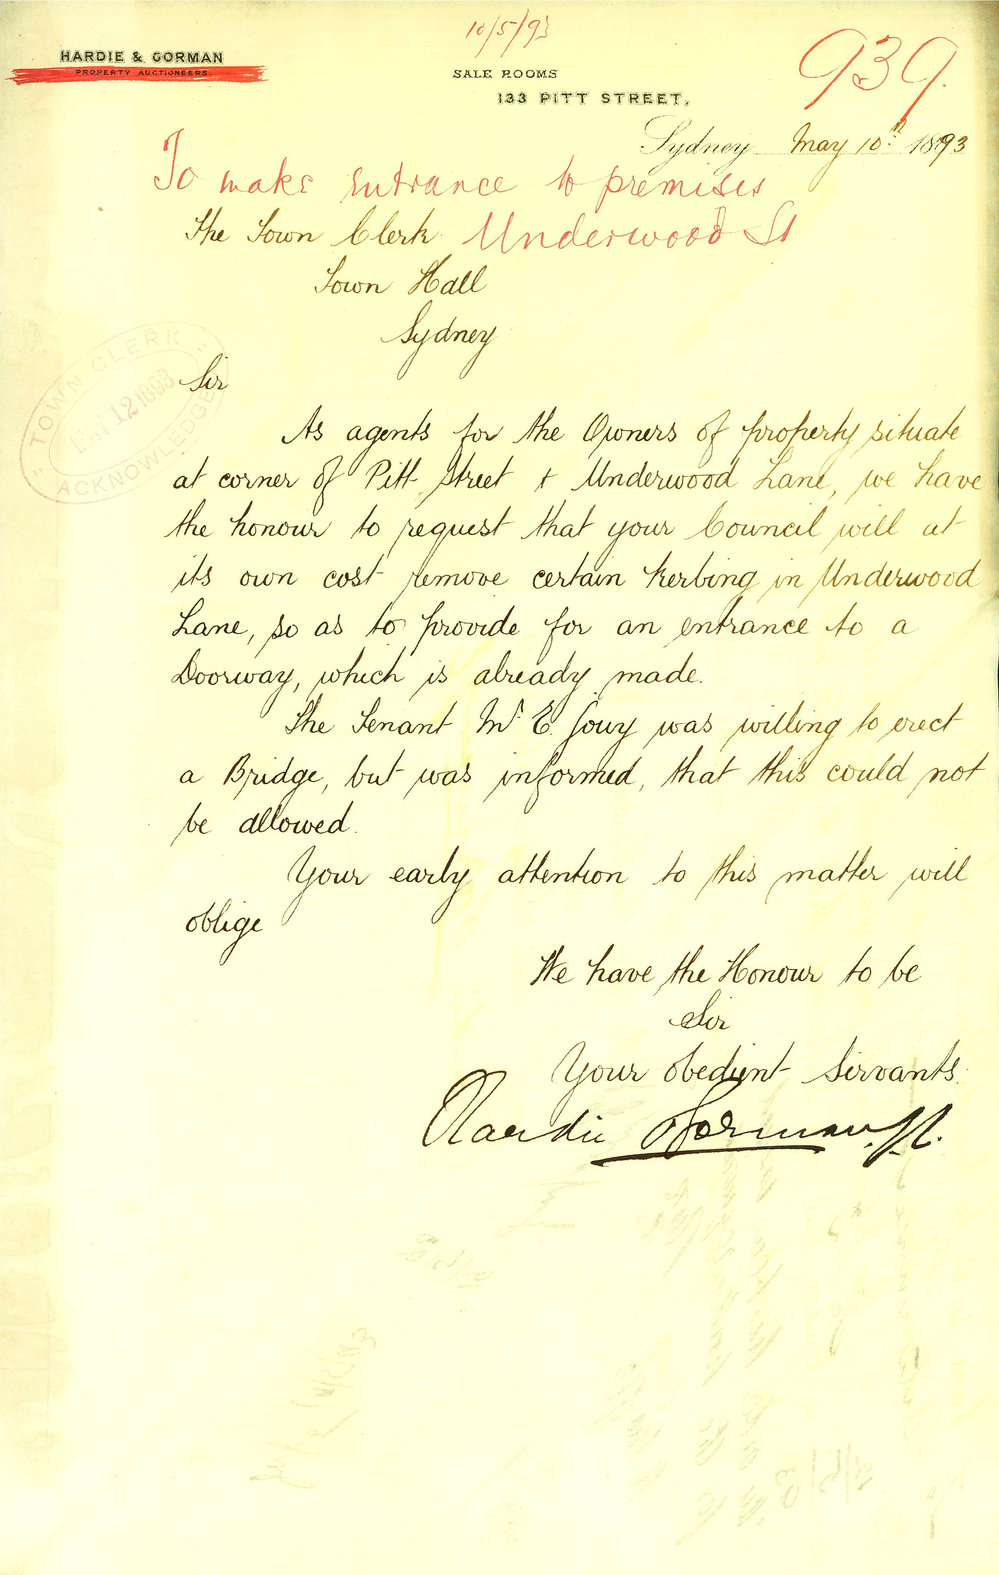 10/5/93
HARDIE & GORMAN
PROPERTY AUCTIONEERS.
SALE ROOMS
133 PITT STREET,
939.
Sydney May 10th 1893
To make entrance to premises
Underwood St
The Town Clerk
Town Hall
Sydney
TOWN CLERK
12 1893
ACKNOWLEDGED
Sir
As agents for the Owners of property situate
at corner of Pitt Street & Underwood Lane, we have
the honour to request that your Council will at
its own cost remove certain kerbing in Underwood
Lane, so as to provide for an entrance to a
Doorway, which is already made.
The Tenant Mr E. was willing to erect
a Bridge, but was informed, that this could not
be allowed.
Your early attention to this matter will
oblige
We have the Honour to be
Sir
Your obedient Servants
Hardie Gorman